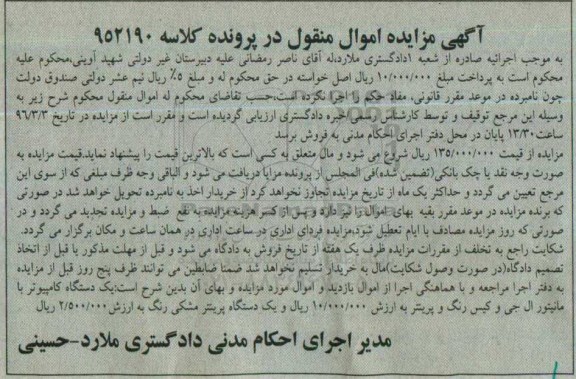 آگهی مزایده اموال منقول در پرونده کلاسه ۹۵۲۱۹۰
به موجب اجرائیه صادره از شعبه ۱دادگستری ملارد،له آقای ناصر رمضانی علیه دبیرستان غیر دولتی شهید آوینی،محکوم علیه
محکوم است به پرداخت مبلغ ۱۰/۰۰۰/۰۰۰ ریال اصل خواسته در حق محکوم له و مبلغ ۵٪ ریال نیم عشر دولتی صندوق دولت
چون نامبرده در موعد مقرر قانونی، مفاد حکم را اجرا نکرده است،حسب تقاضای محکوم له اموال منقول محکوم شرح زیر به
وسیله این مرجع توقیف و توسط کارشناس رسمی/خبره دادگستری ارزیابی گردیده است و مقرر است از مزایده در تاریخ ۹۶/۳/۳
ساعت۱۳/۳۰ پایان در محل دفتر اجرای احکام مدنی به فروش برسد
مزایده از قیمت ۱۳۵/۰۰۰/۰۰۰ ریال شروع می شود و مال متعلق به کسی است که بالاترین قیمت را پیشنهاد نماید.قیمت مزایده به
صورت وجه نقد یا چک بانکی(تضمین شده)فی المجلس از برنده مزایا دریافت می شود و الباقی وجه ظرف مبلغی که از سوی این
مرجع تعیین می گردد و حداکثر یک ماه از تاریخ مزایده تجاوز نخواهد کرد از خریدار اخذ به نامبرده تحویل خواهد شد در صورتی
که برنده مزایده در موعد مقرر بقیه بهای اموال را نپردازد و پس از کسر هزینه مزایده به نفع ضبط و مزایده تجدید می گردد و در
صورتی که روز مزایده مصادف با ایام تعطیل شود،مزایده فردای اداری در ساعت اداری در همان ساعت و مکان برگزار می گردد.
شکایت راجع به تخلف از مقررات مزایده ظرف یک هفته از تاریخ فروش به دادگاه می شود و قبل از مهلت مذکور یا قبل از اتخاذ
تصمیم دادگاه(در صورت وصول شکایت)مال به خریدار تسلیم نخواهد شد ضمنا ضابطین می توانند ظرف پنج روز قبل از مزایده
به دفتر اجرا مراجعه و با هماهنگی اجرا از اموال بازدید و اموال مورد مزایده و بهای آن بدین شرح است:یک دستگاه کامپیوتر با
مانیتور ال جی و کیس رنگ و پرینتر به ارزش ۱۰/۰۰۰/۰۰۰ ریال و یک دستگاه پرینتر مشکی رنگ به ارزش ۲/۵۰۰/۰۰۰ ریال
مدیر اجرای احکام مدنی دادگستری ملارد-حسینی